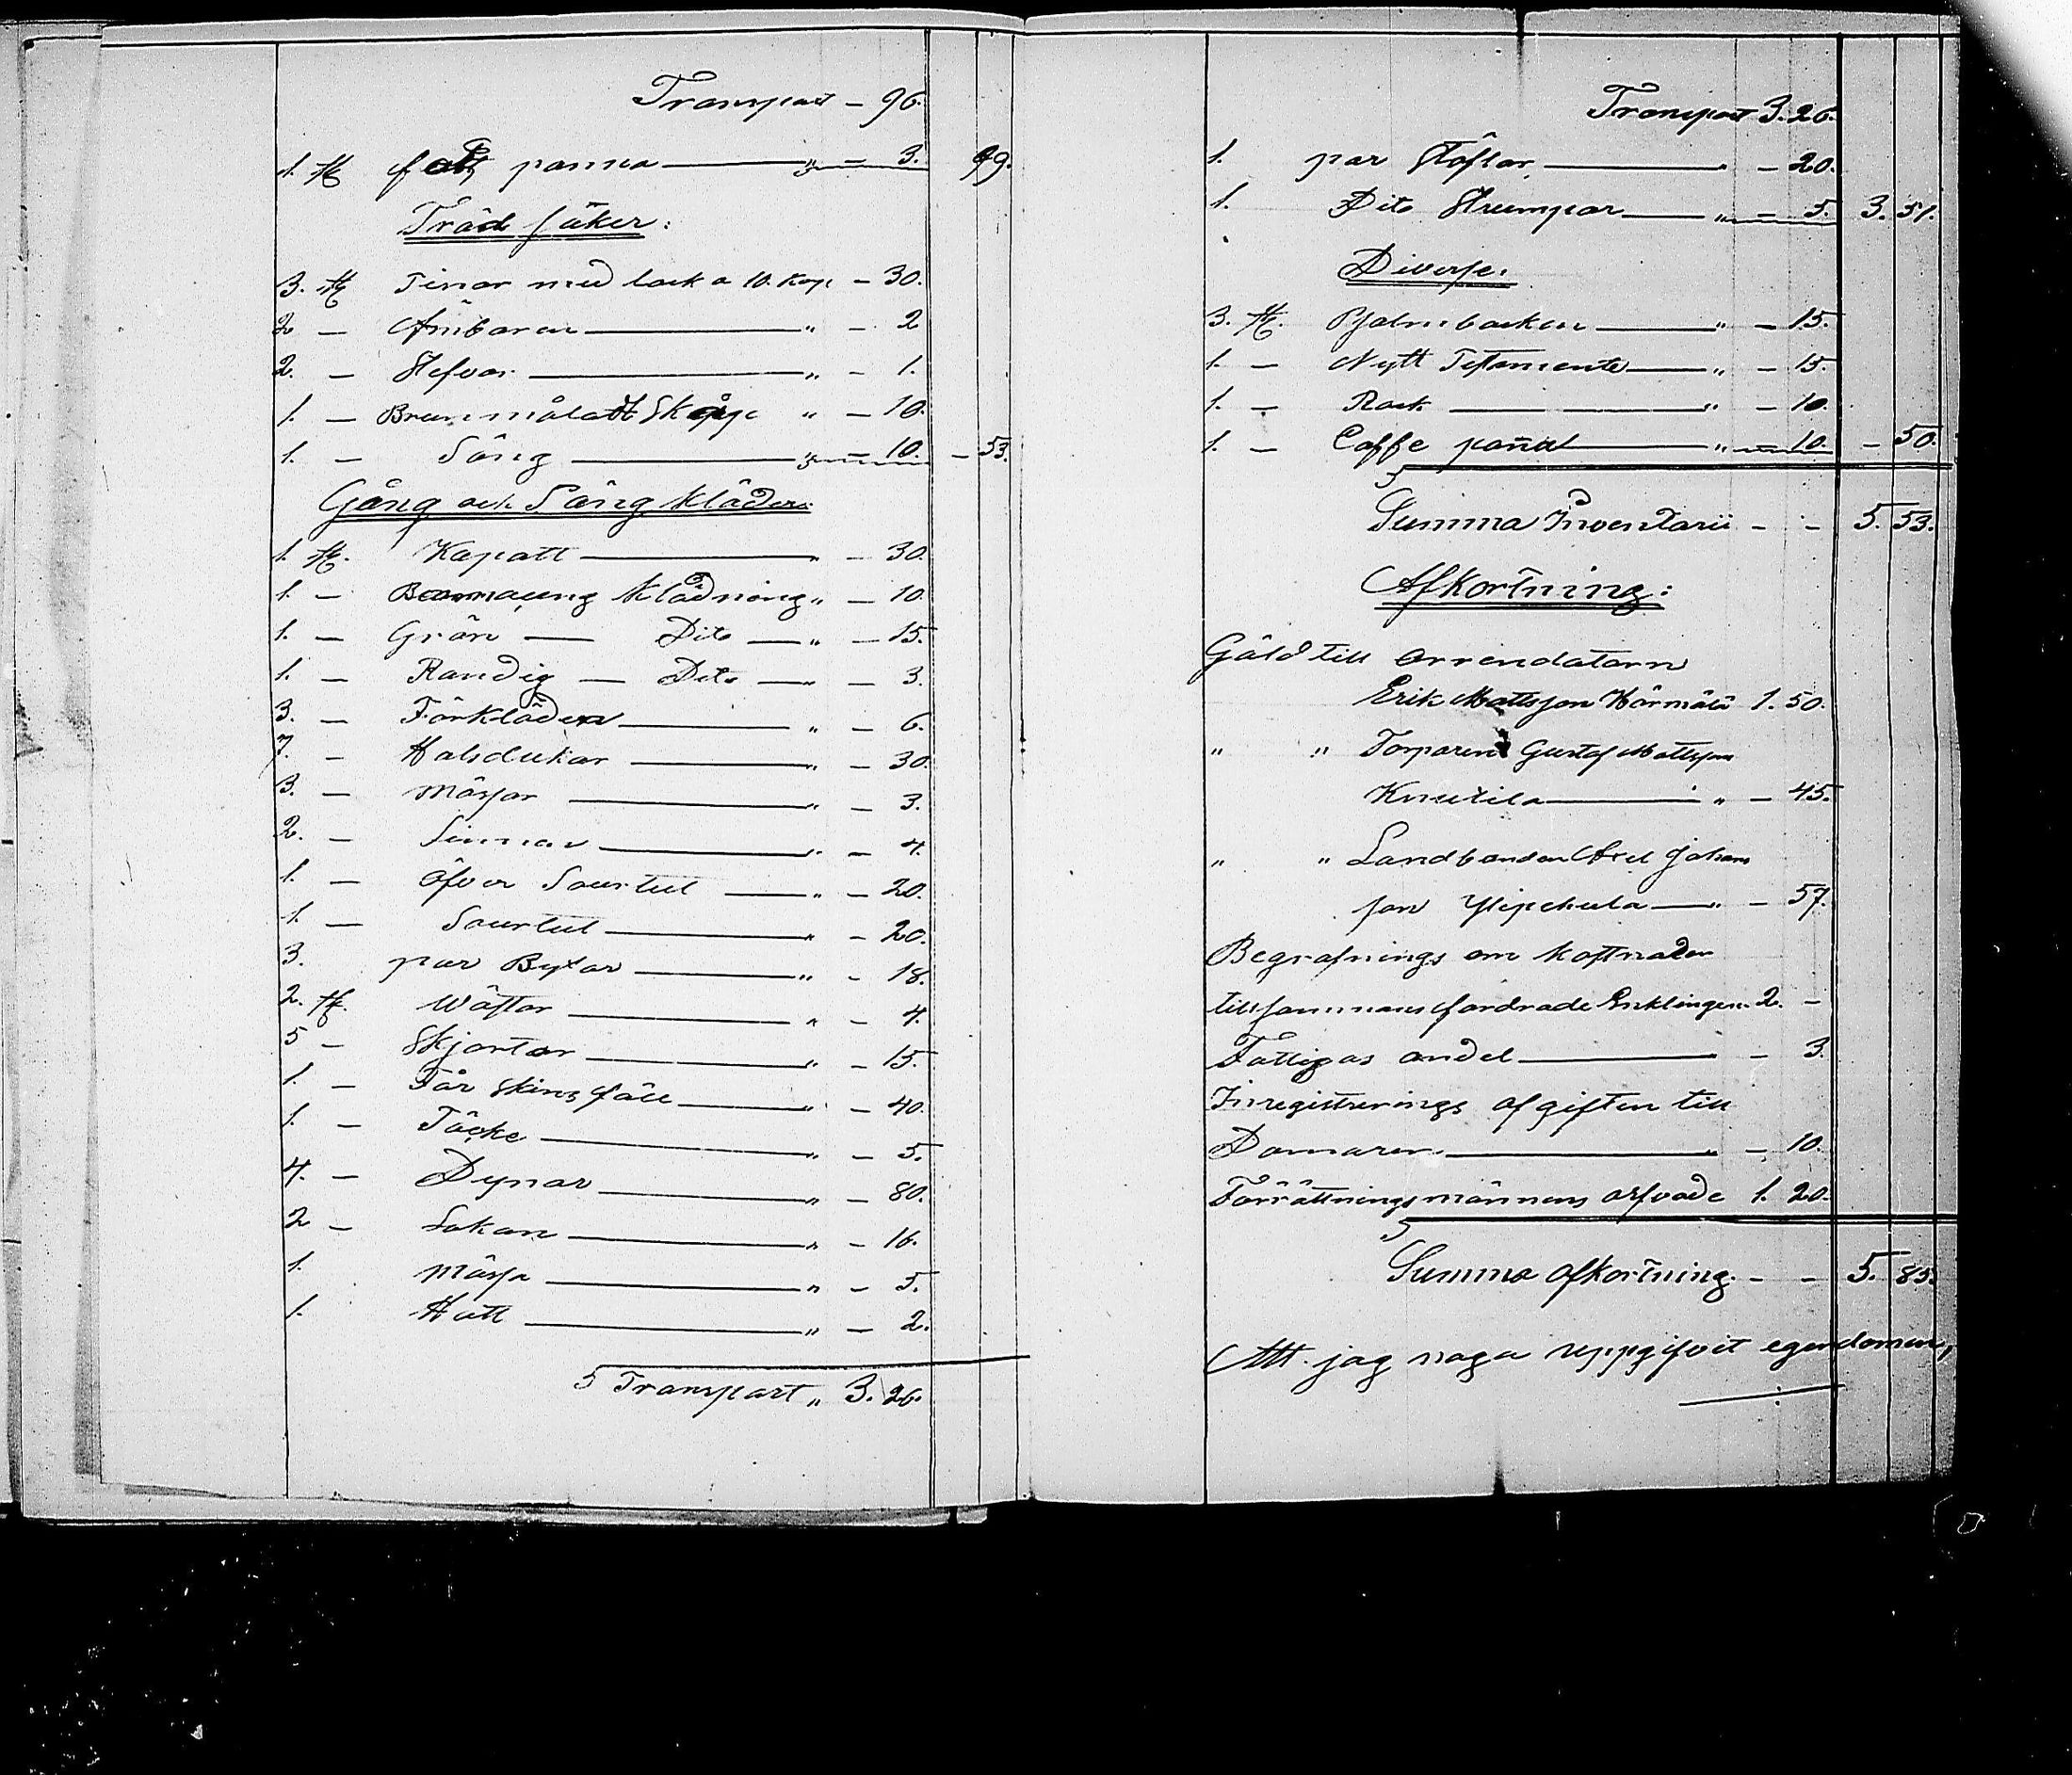 Transport – 96.
1. st panna " – 3. 99.
Träd saker:
3. st Tinor med lock a 10. Kop – 30.
2 – Ämbaren " – 2
2. – Stefvor " – 1.
1. – Brunmålatt Skåp " – 10.
1. – Säng " – 10. – 53.
Gång och Säng kläder:
1. st. Kapott " – 30.
1. – klädning " – 10
1. – Grön – Dito – " – 15.
1. – Randig – Dito – " – 3.
3. – Förkläden " – 6.
7. – Halsdukar " – 30.
3. – Mössor " – 3.
2. – " – 4.
1. – Öfver Sourtut – " – 20.
1. – Sourtut " – 20.
3. par Byxor " – 18.
2. st. Wästar " – 4.
5 – Skjortor " – 15.
1. – Får skins fäll " – 40.
1. – Täcke " – 5.
4. – Dynar " – 80.
2 – Lakan " – 16.
1. Mössa " – 5.
1. Hatt " – 2.
Transport " 3. 26.
Transport 3. 26.
1. par Stöflar " – 20.
1. Dito Strumpor " – 5. 3. 51.
Diverse:
3. st. " – 15.
1. – Nytt Testamente " – 15.
1. – Rock " – 10.
1. – Caffe " – 10. – 50.
Summa Inventarii – – 5. 53.
Afkortning:
Gäld till arrendatorn
Erik Mattsson Härmälä 1. 50.
" " Torparen Gustaf Mattsson
Knutila " – 45.
" " Landbonden Axel Johans
son Ylipekula " – 57.
Begrafnings om kostnader
tillsammans fordrade Enklingen 2. –
Fattigas andel – 3.
Inregistrerings afgiften till
Domaren " – 10.
Förrättningsmännens arfvode 1. 20.
Summa afkortning. – – 5. 85.
Att jag noga uppgifvit egendomen,